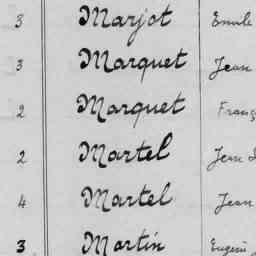 3 Marjot Emile
3 Marquet Jean
2 Marquet Franç
2 Martel Jean
4 Martel Jean
3 Martin Eugène